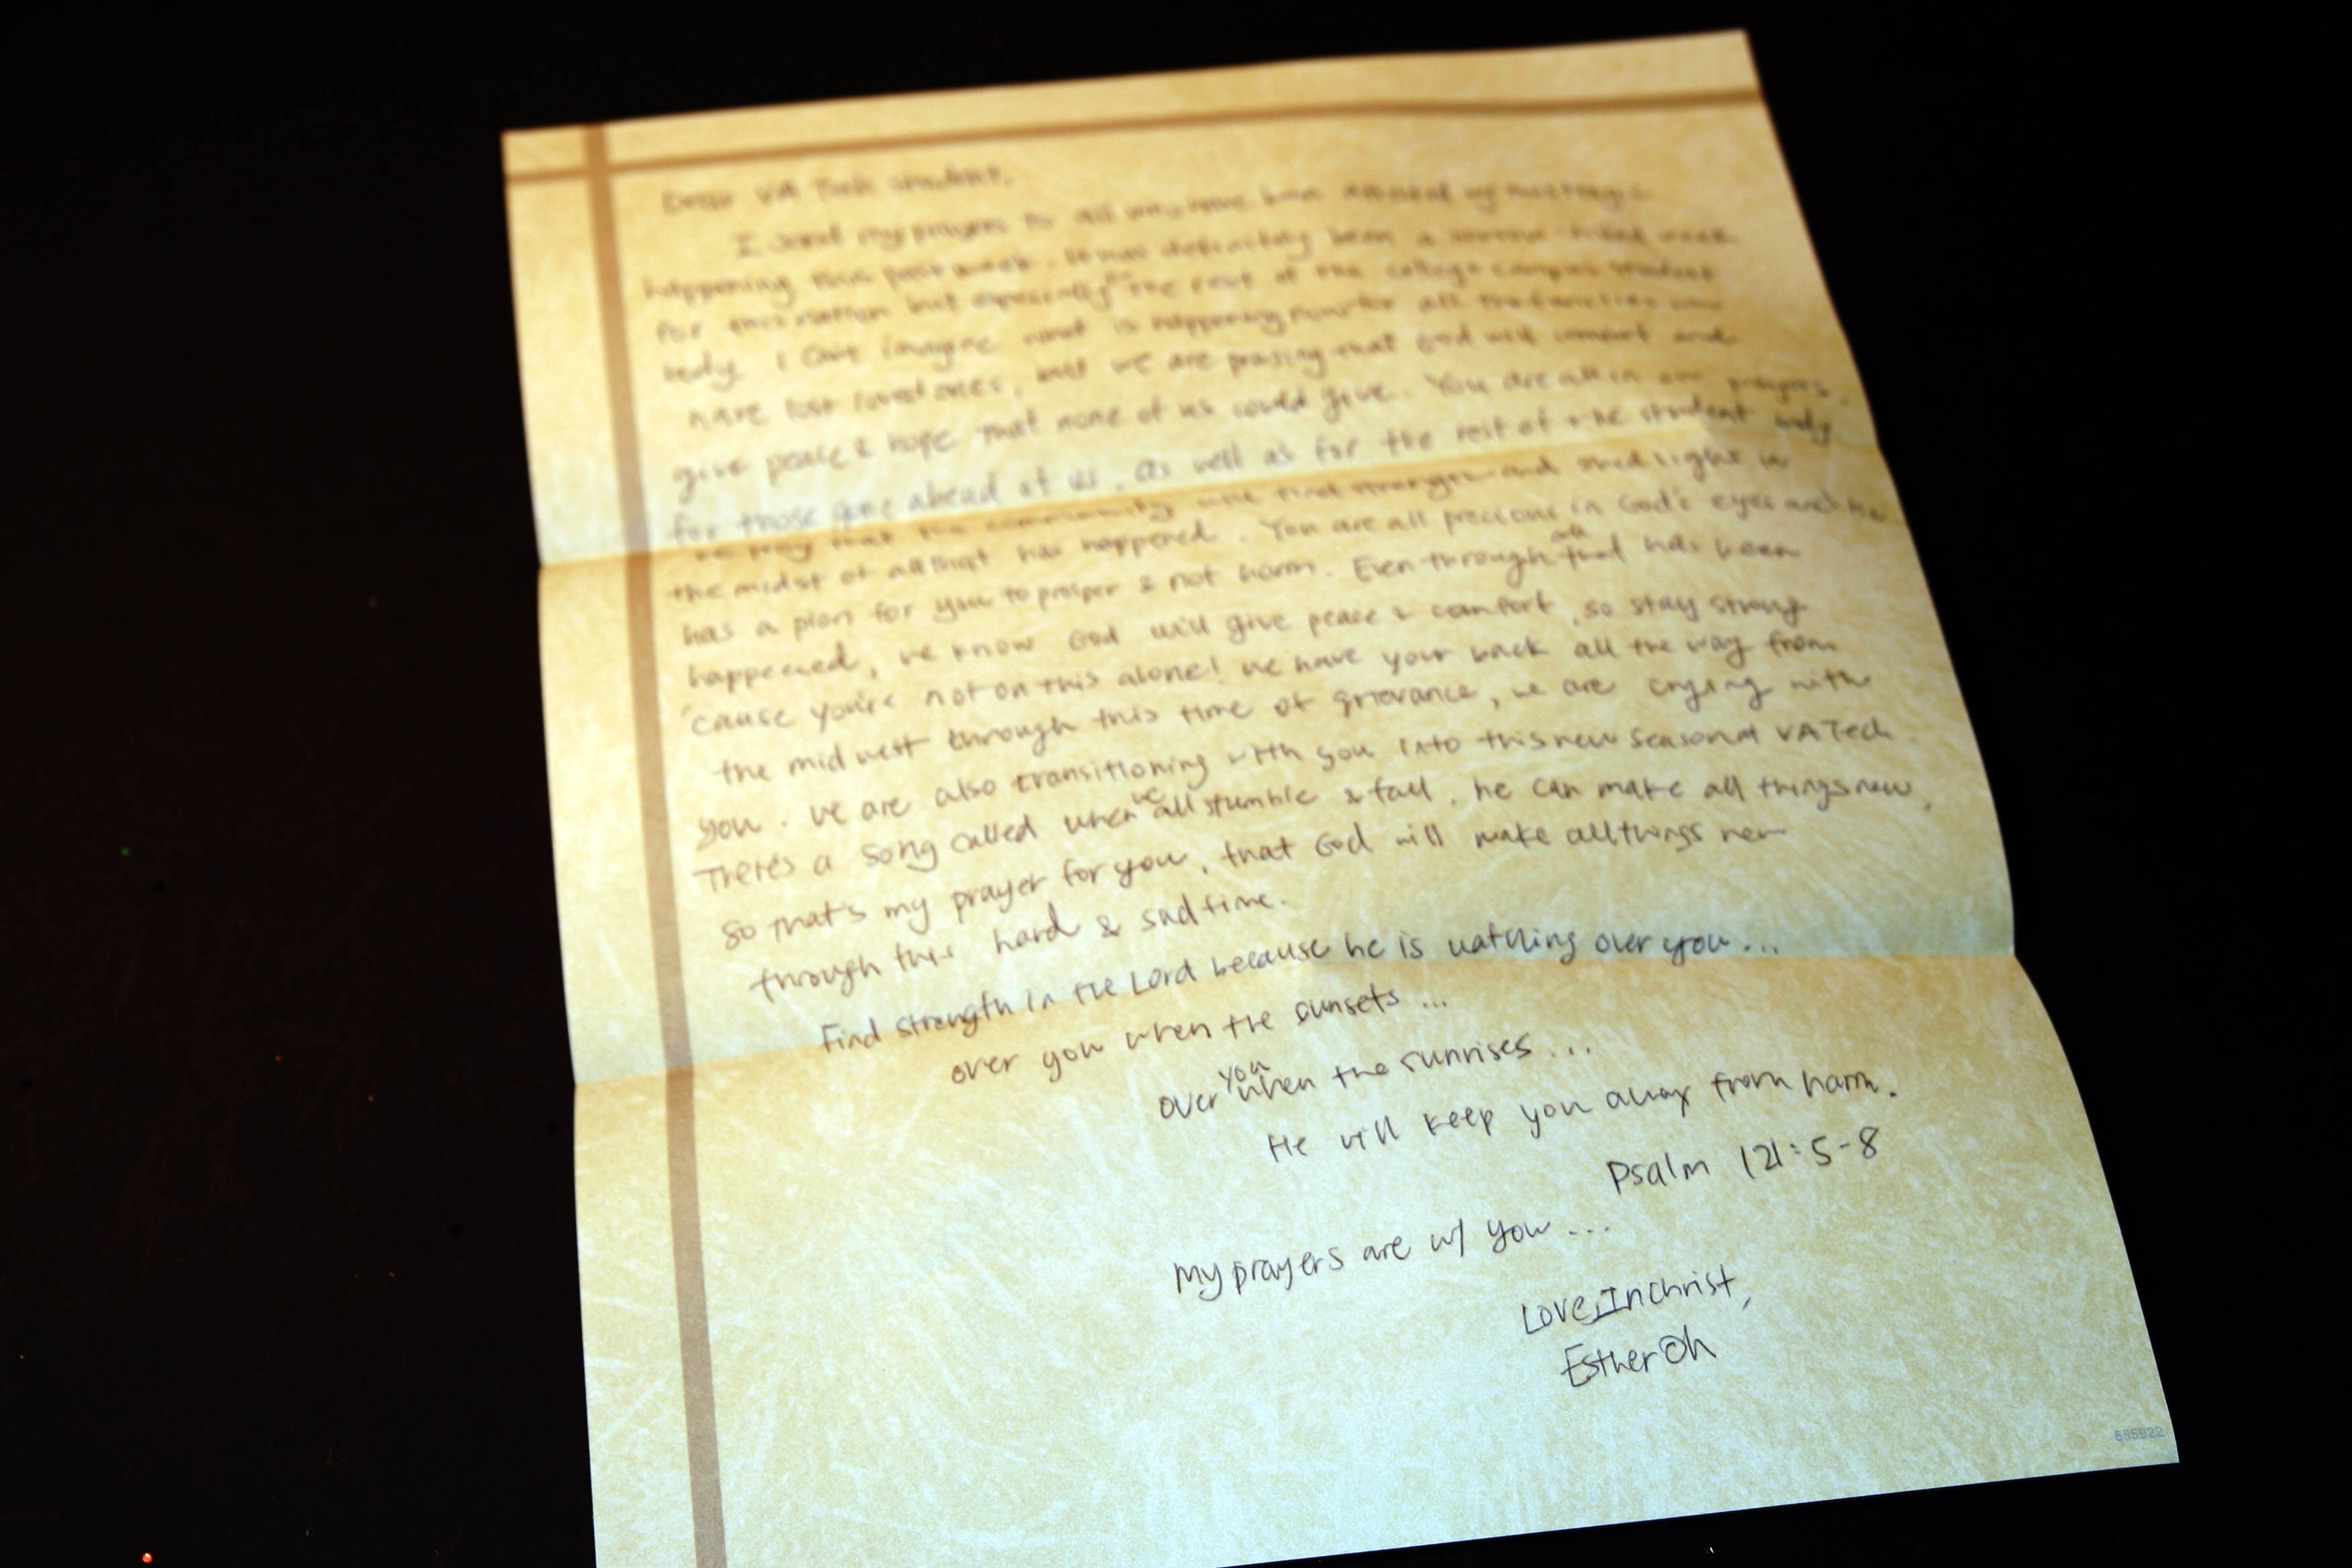 Dear VA Tech student,
I send my prayers to all who have been affected by
happening this past week. It has definitely been a sorrow filled week
for this nation but especially the rest of the college campus student
body. I can't imagine what is happening now for all the families who
have lost loved ones, but we are praying that God will comfort and
give peace & hope that none of us could give. You are all in our prayers.
for those gone ahead of us, as well as for the rest of the student body
we pray that the community will find strength and shed light in
the midst of all that has happened. You are all precious in God's eyes and He
has a plan for you to prosper & not harm. Even through all that has been
happened, we know God will give peace & comfort, so stay strong
'cause you're not on this alone! We have your back all the way from
the midwest through this time of grievance, we are crying with
you. We are also transitioning with you into this new season at VA Tech.
There's a song called when we all stumble & fall, he can make all things new,
so that's my prayer for you, that God will make all things new
through this hard & sad time.
Find strength in the Lord because he is watching over you...
over you when the sunsets...
over you when the sunrises...
He will keep you away from harm.
Psalm 121:5-8
My prayers are w/ you...
Love, In Christ,
Esther Oh
655922